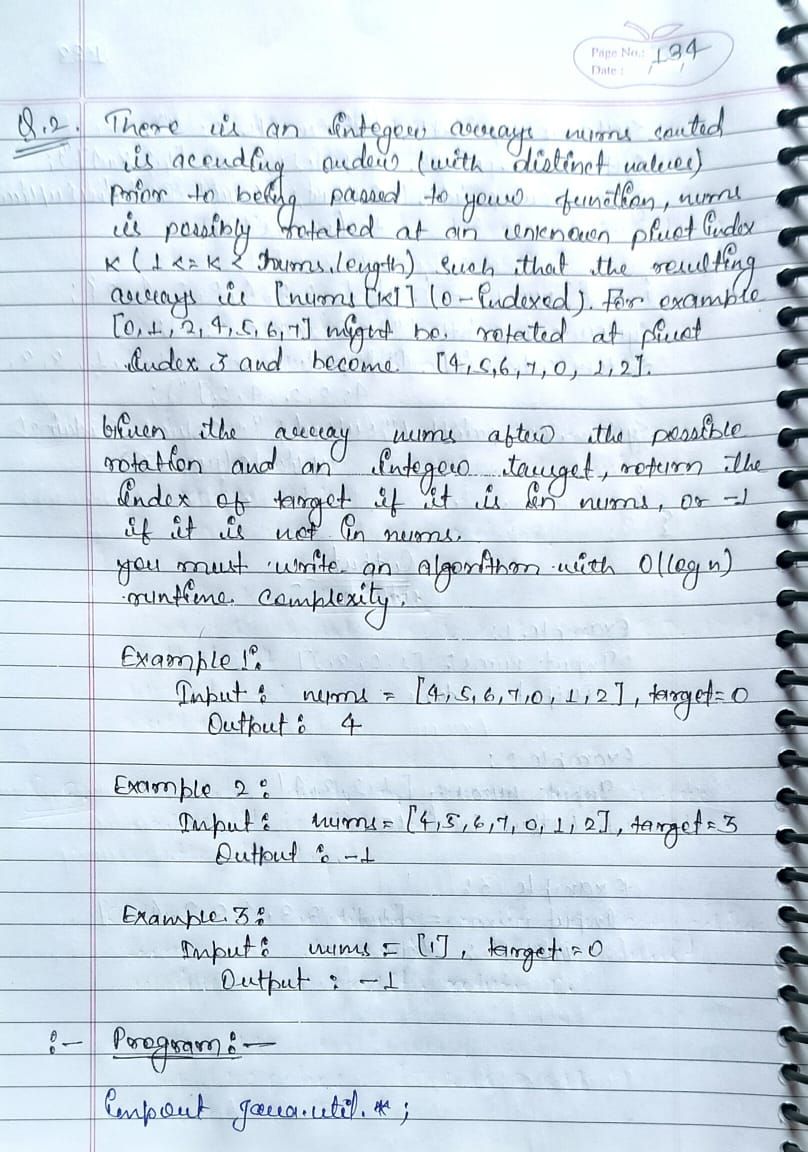 Page No.: 134
Date :
Q.2. There is an integer arrays nums sorted
is acending order (with distinct values)
Prior to being passed to your function, nums
is possibly rotated at an unknown pivot index
K (1 <= K < nums.length) such that the resulting
arrays is [nums[k]] (0-indexed). For example
[0,1,2,4,5,6,7] might be rotated at pivot
index 3 and become [4,5,6,7,0,1,2].
Given the array nums after the possible
rotation and an integer target, return the
index of target if it is in nums, or -1
if it is not in nums.
you must write an algorithm with O(log n)
runtime complexity.
Example 1:
Input : nums = [4,5,6,7,0,1,2], target=0
Output : 4
Example 2 :
Input : nums = [4,5,6,7,0,1,2], target=3
Output : -1
Example 3:
Input : nums = [1], target=0
Output : -1
:- Program :-
import java.util.*;